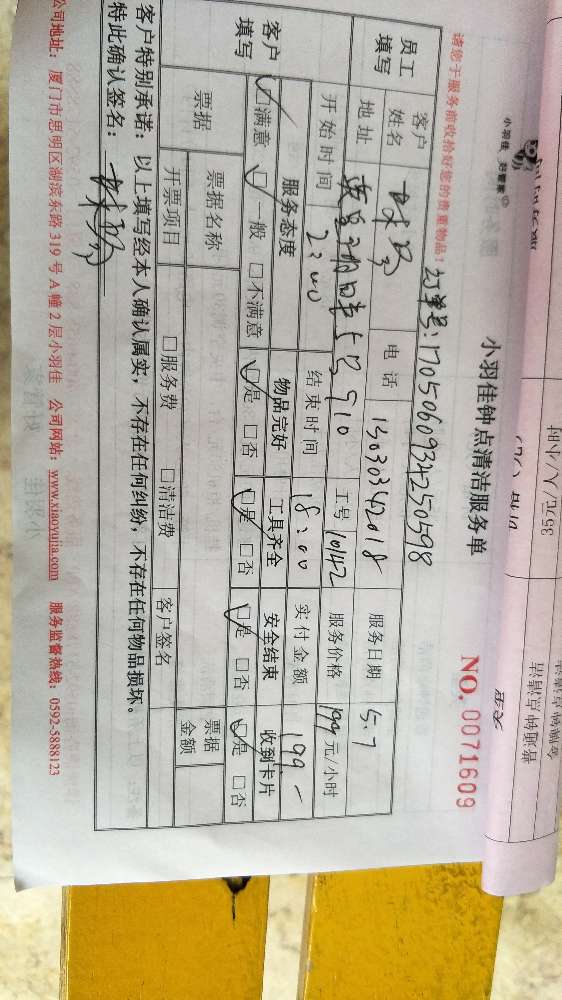 小羽佳 好管家
小羽佳钟点清洁服务单
请您于服务前收拾好您的贵重物品!
NO. 0071609
订单号:1705060934250598
员工填写
客户姓名
电话
服务日期 5.7
地址
510
工号 10142
服务价格 199 元/小时
开始时间
结束时间 18:00
实付金额 199-
客户填写
服务态度
物品完好
工具齐全
安全结束
收到卡片
☑满意 ☑一般 □不满意
☑是 □否
☑是 □否
☑是 □否
☑是 □否
票据
票据名称
票据金额
开票项目
□服务费 □清洁费
客户签名
客户特别承诺:以上填写经本人确认属实,不存在任何纠纷,不存在任何物品损坏。
特此确认签名:
公司地址:厦门市思明区湖滨东路 319 号 A 幢 2 层小羽佳 公司网站:www.xiaoyujia.com 服务监督热线:0592-5888123
35元/人/小时